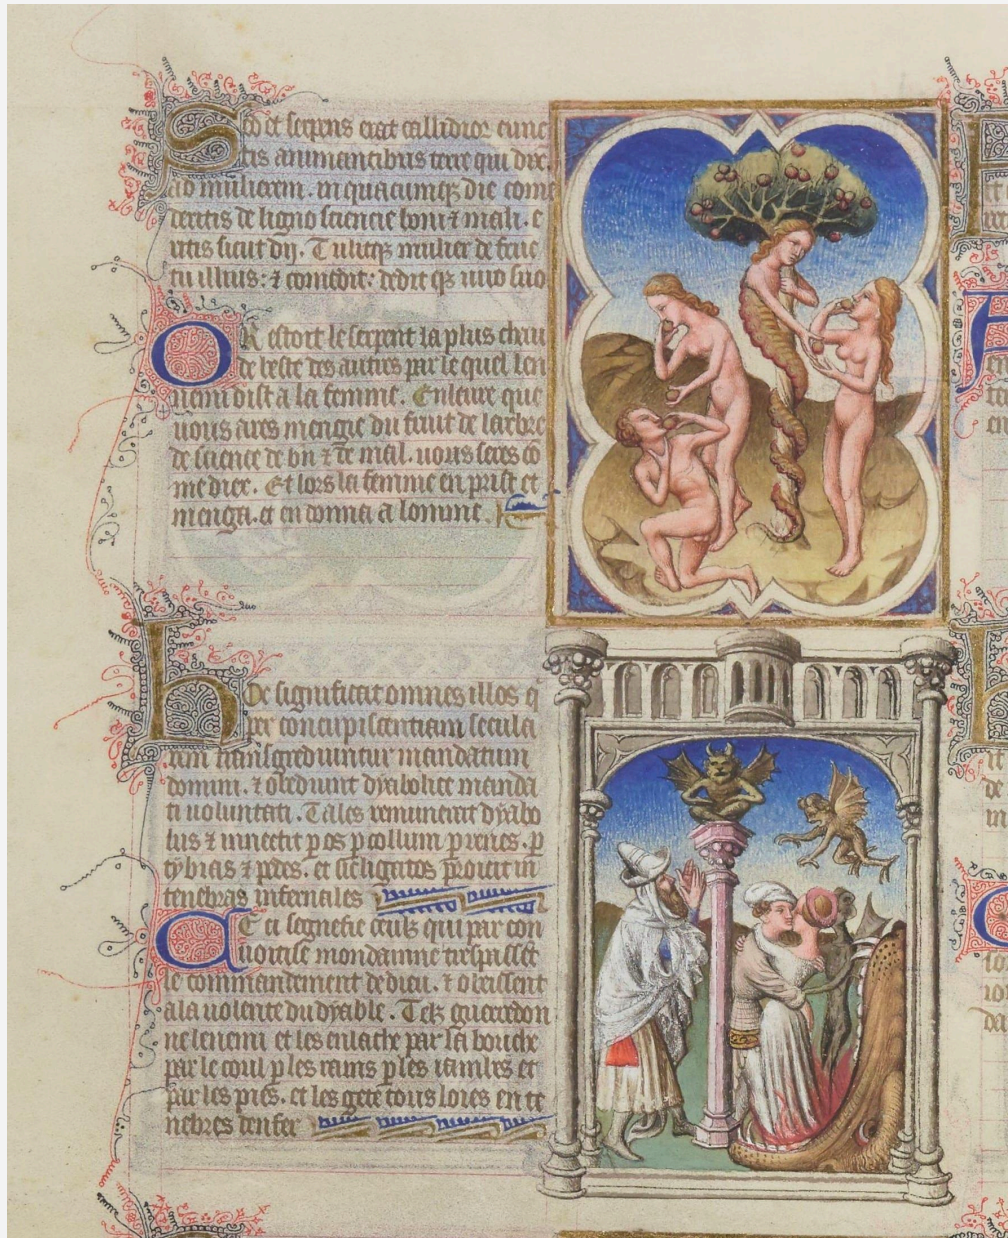 Sed et serpens erat callidior cunc
tis animantibus terre qui dix
ad mulierem. in quacumqz die come
deritis de ligno sciencie boni ⁊ mali. e
ritis sicut dij. Tulitqz mulier de fruc
tu illius: ⁊ comedit: dedit qz viro suo
OR estoit le serpent la plus chau
de beste des autres par le quel len
nemi dist a la femme. En leure que
vous ares mengie du fruit de larbre
de science de bn ⁊ de mal. vous seres co
me diex. Et lors la femme en prist et
menga. et en donna a lomme.
Hoc significat omnes illos q
per concupiscentiam secula
rem transgrediuntur mandatum
domini. ⁊ obediunt dyabolice manda
ti voluntati. Tales remunerat dyabo
lus ⁊ innectit p os p collum p renes. p
tybias ⁊ pedes. et sic ligatos proicit in
tenebras infernales
Ce ci segnefie ceulz qui par con
voitise mondainne trespassent
le commandement de dieu. ⁊ obeissent
a la volente du dyable. Telz guerredon
ne lenemi et les enlache par la bouche
par le coul p les rains p les iambes et
par les pies. et les gete tous loies en te
nebres denfer